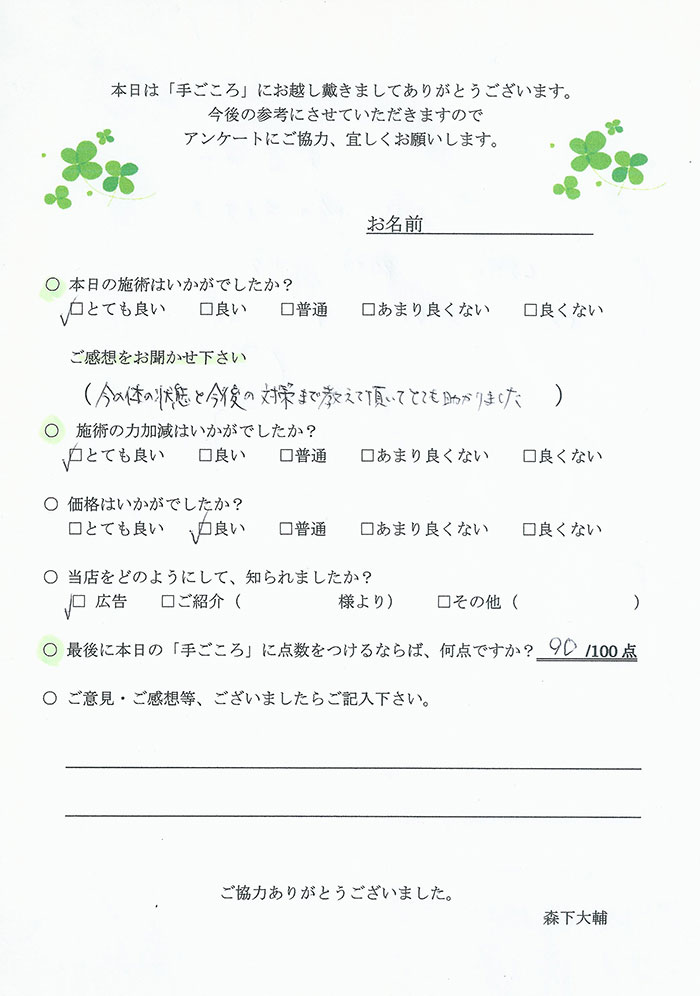 本日は「手ごころ」にお越し戴きましてありがとうございます。
今後の参考にさせていただきますので
アンケートにご協力、宜しくお願いします。
お名前
○ 本日の施術はいかがでしたか？
□とても良い □良い □普通 □あまり良くない □良くない
ご感想をお聞かせ下さい
（今の体の状態と今後の対策まで教えて頂いてとても助かりました）
○ 施術の力加減はいかがでしたか？
□とても良い □良い □普通 □あまり良くない □良くない
○ 価格はいかがでしたか？
□とても良い □良い □普通 □あまり良くない □良くない
○ 当店をどのようにして、知られましたか？
□ 広告 □ご紹介（ 様より） □その他（ ）
○ 最後に本日の「手ごころ」に点数をつけるならば、何点ですか？ 90 /100点
○ ご意見・ご感想等、ございましたらご記入下さい。
ご協力ありがとうございました。
森下大輔